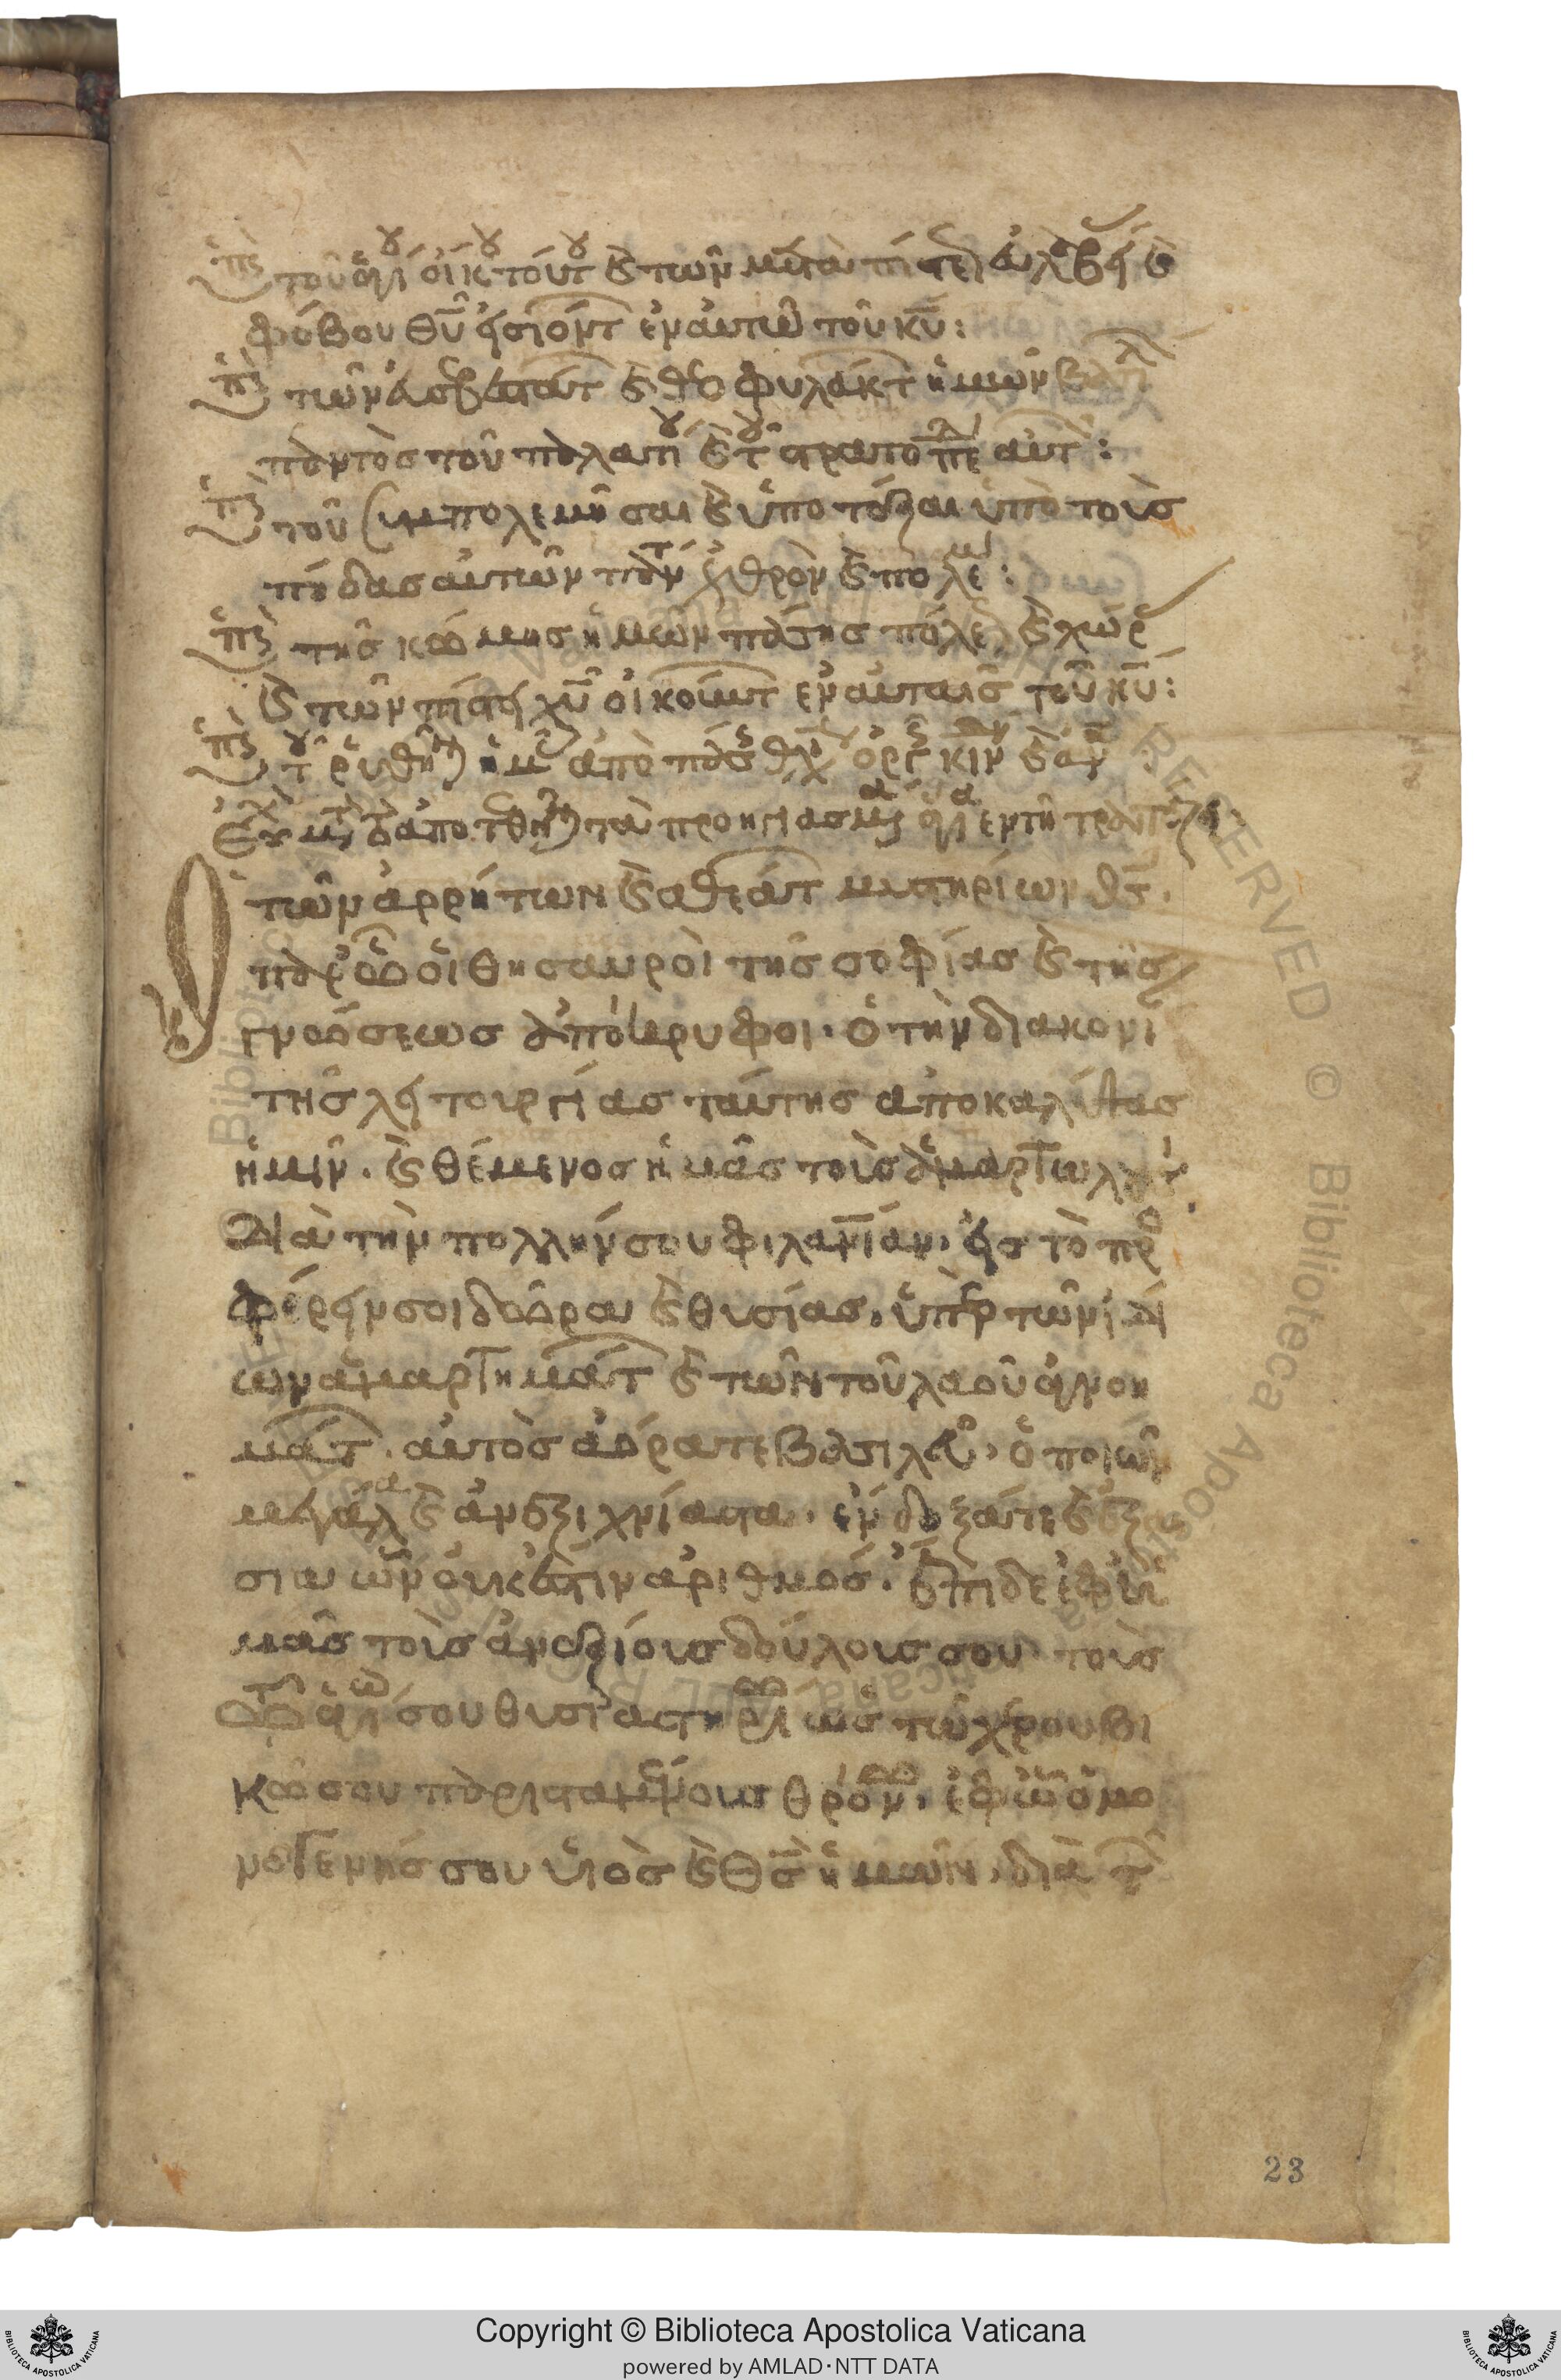 ὑπὲρ τοῦ ἁγί οἴκ τούτ καὶ τῶν μετὰ πίστε εὐλαβεί καὶ
φόβου θῦ εἰσιόντ ἐν αὐτῶ τοῦ κῦ:
ὑπὲρ τῶν εὐσεβεστάτ καὶ θεοφυλάκτ ἡμῶν βασιλ
παντὸς τοῦ παλατί καὶ τ στρατοπε αὐτ:
ὑπὲρ τοῦ συμπολεμῆσαι καὶ ὑποτάξαι ὑπὸ τοὺς
πόδας αὐτῶν πάντ ἐχθρὸν καὶ πολέμ:
ὑπὲρ τῆς κώμης ἡμῶν πάσης πόλε καὶ χώρ
καὶ τῶν πίστει χῦ οἰκούντ ἐν αὐταῖς τοῦ κῦ:
ὑπὲρ τ ῥυσθῆν ἡμ ἀπὸ πάσ θλ ὀργ κιν καὶ ἀν:
Εὐχὴ μετὰ τὸ ἀποτεθῆν τὰ προηγιασμ ἅγια ἐν τῆ τραπέζη
Ὁ τῶν ἀρρήτων καὶ ἀθεάτ μυστηρίων θς.
παρ ὧ οἱ θησαυροὶ τῆς σοφίας καὶ τῆς
γνώσεως ἀπόκρυφοι. ὁ τὴν διακονί
τῆς λειτουργίας ταύτης ἀποκαλύψας
ἡμῖν. καὶ θέμενος ἡμᾶς τοὺς ἁμαρτωλοὺς
διὰ τὴν πολλήν σου φιλανίαν, εἰς τὸ προσ
φέρειν σοι δῶρα καὶ θυσίας, ὑπὲρ τῶν ἰδί
ων ἁμαρτημάτ καὶ τῶν τοῦ λαοῦ ἀγνοη
μάτ. αὐτὸς ἀόρατε βασιλεῦ, ὁ ποιῶν
μεγάλ καὶ ἀνεξιχνίαστα. ἔνδοξά τε καὶ ἐξαί
σια ὧν οὐκ ἔστιν ἀριθμός. ἔπιδε ἐφ ἡ
μᾶς τοὺς ἀναξίους δούλους σου τοὺς
τῶ ἁγίω σου θυσιαστηρίω ὡς τῶ χερουβι
κῶ σου παρισταμένους θρόνω, ἐφ ὧ ὁ μο
νογενής σου υἱὸς καὶ θς ἡμῶν, διὰ τ
23
Copyright © Biblioteca Apostolica Vaticana
powered by AMLAD·NTT DATA